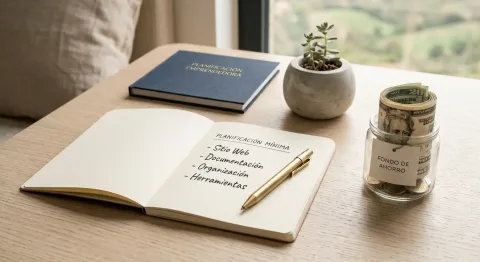 PLANIFICACIÓN
EMPRENDEDORA
PLANIFICACIÓN MÍNIMA
- Sitio Web
- Documentación
- Organización
- Herramientas
FONDO DE
AHORRO